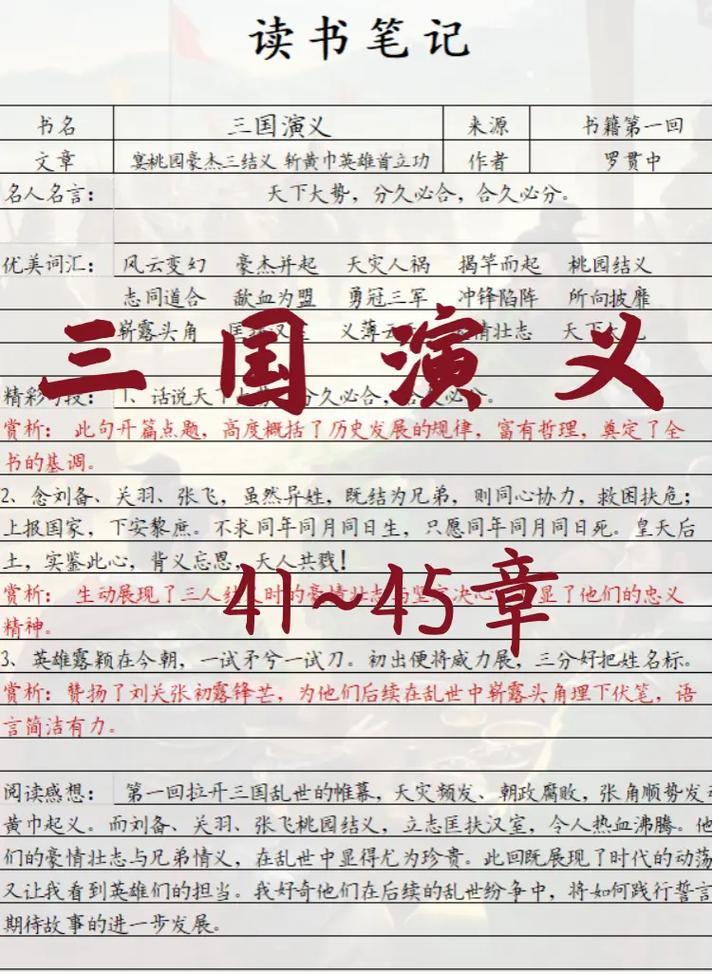 读书笔记
书名 三国演义 来源 书籍第一回
文章 宴桃园豪杰三结义 斩黄巾英雄首立功 作者 罗贯中
名人名言： 天下大势，分久必合，合久必分。
优美词汇： 风云变幻 豪杰并起 天灾人祸 揭竿而起 桃园结义
志同道合 歃血为盟 勇冠三军 冲锋陷阵 所向披靡
崭露头角 义薄 情壮志 天下
三国演义
精彩 1、话说天 分久必合， 。
赏析： 此句开篇点题，高度概括了历史发展的规律，富有哲理，奠定了全
书的基调。
2、念刘备、关羽、张飞，虽然异姓，既结为兄弟，则同心协力，救困扶危；
上报国家，下安黎庶。不求同年同月同日生，只愿同年同月同日死。皇天后
土，实鉴此心，背义忘恩，天人共戮！
赏析： 生动展现了三人 时的豪情壮志与坚 决心 显了他们的忠义
精神。
41~45章
3、英雄露颖在今朝，一试矛兮一试刀。初出便将威力展，三分好把姓名标。
赏析：赞扬了刘关张初露锋芒，为他们后续在乱世中崭露头角埋下伏笔，语
言简洁有力。
阅读感想： 第一回拉开三国乱世的帷幕，天灾频发、朝政腐败，张角顺势发
黄巾起义。而刘备、关羽、张飞桃园结义，立志匡扶汉室，令人热血沸腾。他
们的豪情壮志与兄弟情义，在乱世中显得尤为珍贵。此回既展现了时代的动荡
又让我看到英雄们的担当。我好奇他们在后续的乱世纷争中，将如何践行誓言
期待故事的进一步发展。